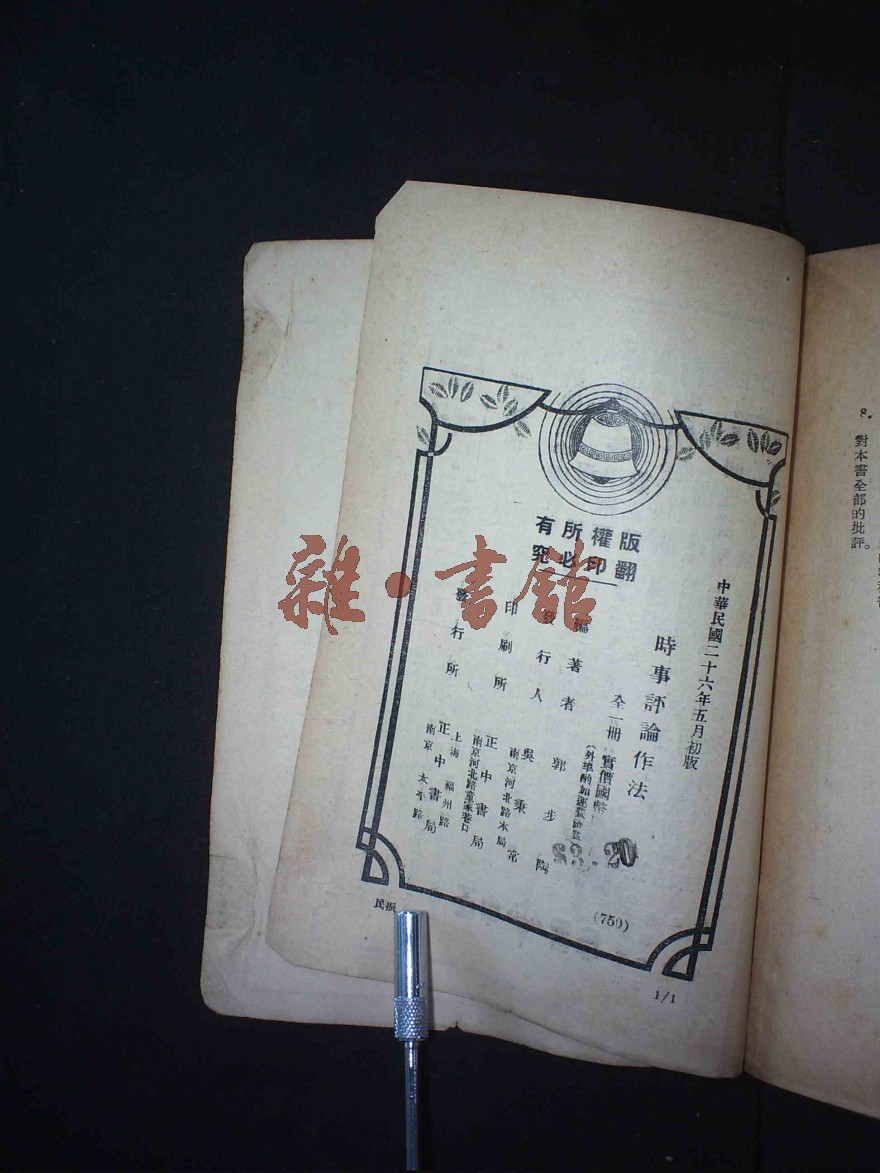 版權所有
翻印必究
中華民國二十六年五月初版
時事評論作法
全一冊 實價國幣
$3.20
(外埠酌加運費匯費)
編著者 郭步陶
發行人 吳秉常
南京河北路本局
印刷所 正中書局
南京河北路童家巷口
發行所 正中書局
上海福州路
南京太平路
(750)
民振
1/1
8. 對本書全部的批評。
雜·書館